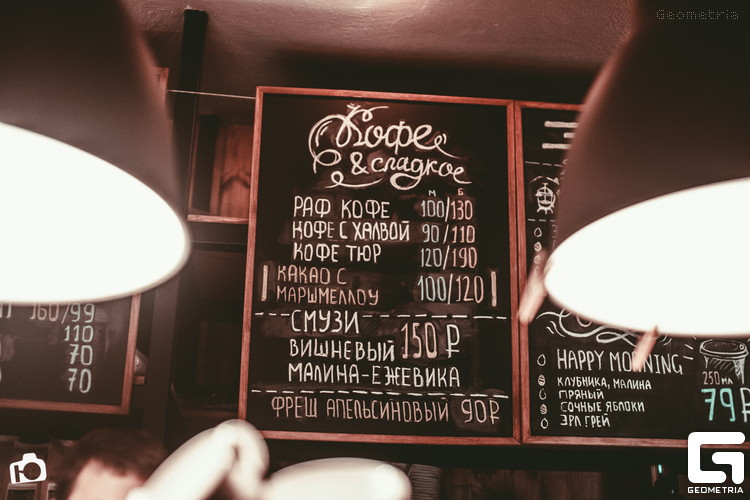 Geometria
Кофе
& сладкое
М Б
РАФ КОФЕ 100/130
КОФЕ С ХАЛВОЙ 90/110
КОФЕ ТЮР 120/190
КАКАО С
МАРШМЕЛЛОУ 100/120
СМУЗИ
ВИШНЕВЫЙ 150 ₽
МАЛИНА-ЕЖЕВИКА
ФРЕШ АПЕЛЬСИНОВЫЙ 90₽
160/99
110
70
70
HAPPY MORNING
КЛУБНИКА, МАЛИНА
ПРЯНЫЙ
СОЧНЫЕ ЯБЛОКИ
ЭРЛ ГРЕЙ
250 МЛ
79₽
GEOMETRIA